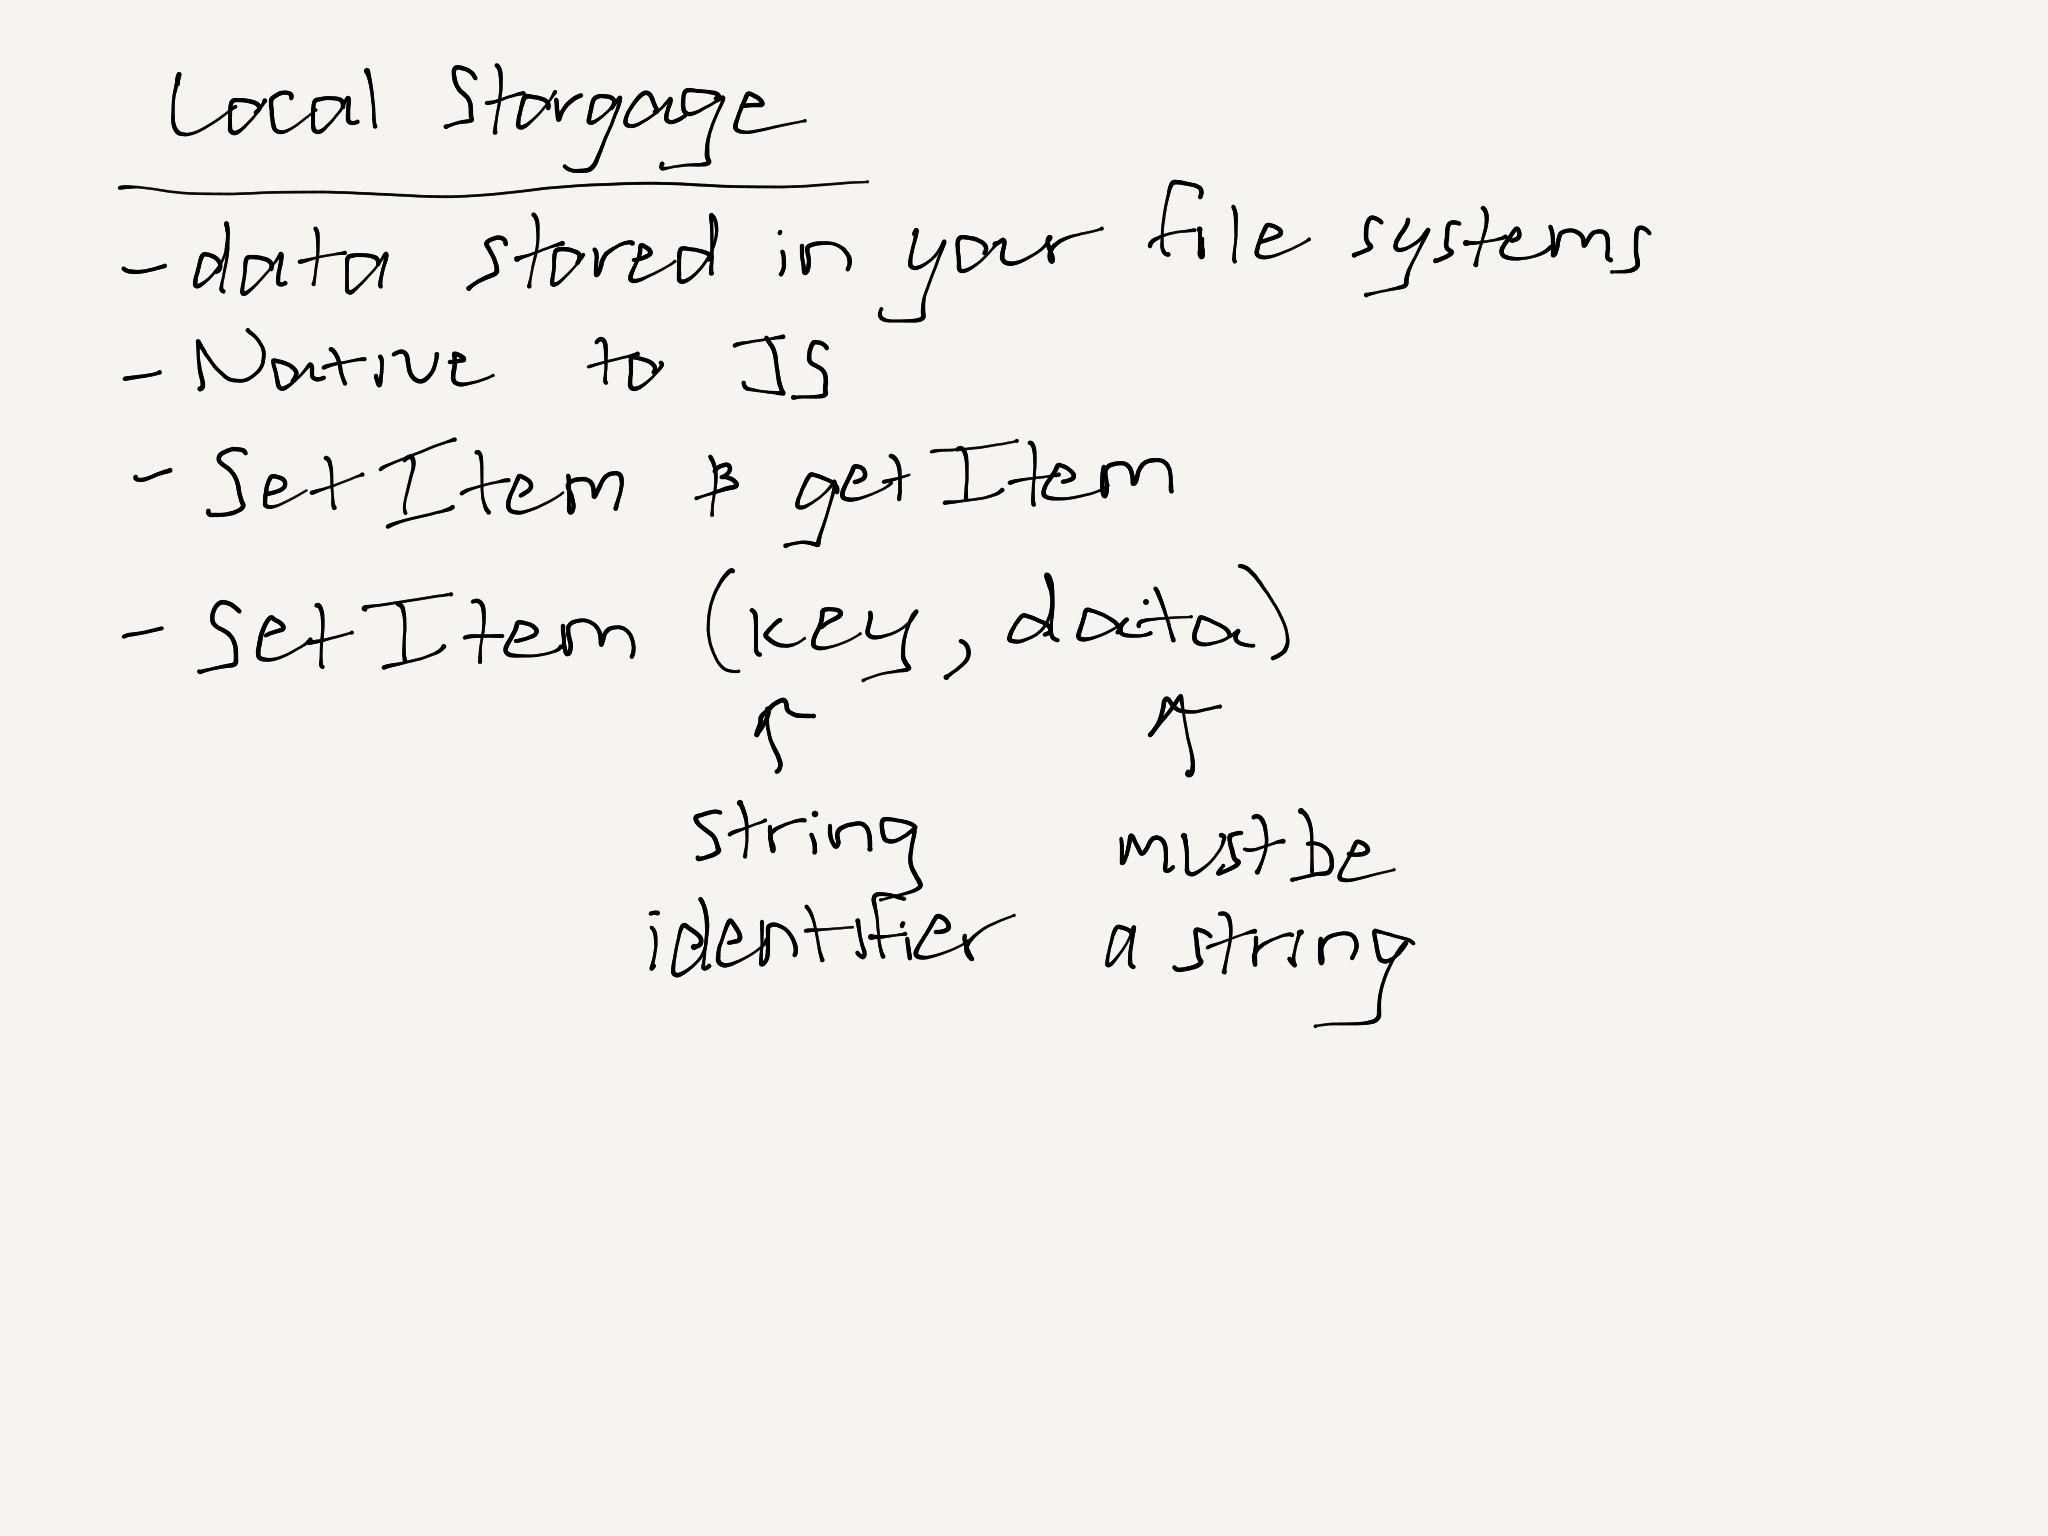 Local Storgage
- data stored in your file systems
- Native to JS
- SetItem & getItem
- SetItem (key, data)
string must be
identifier a string